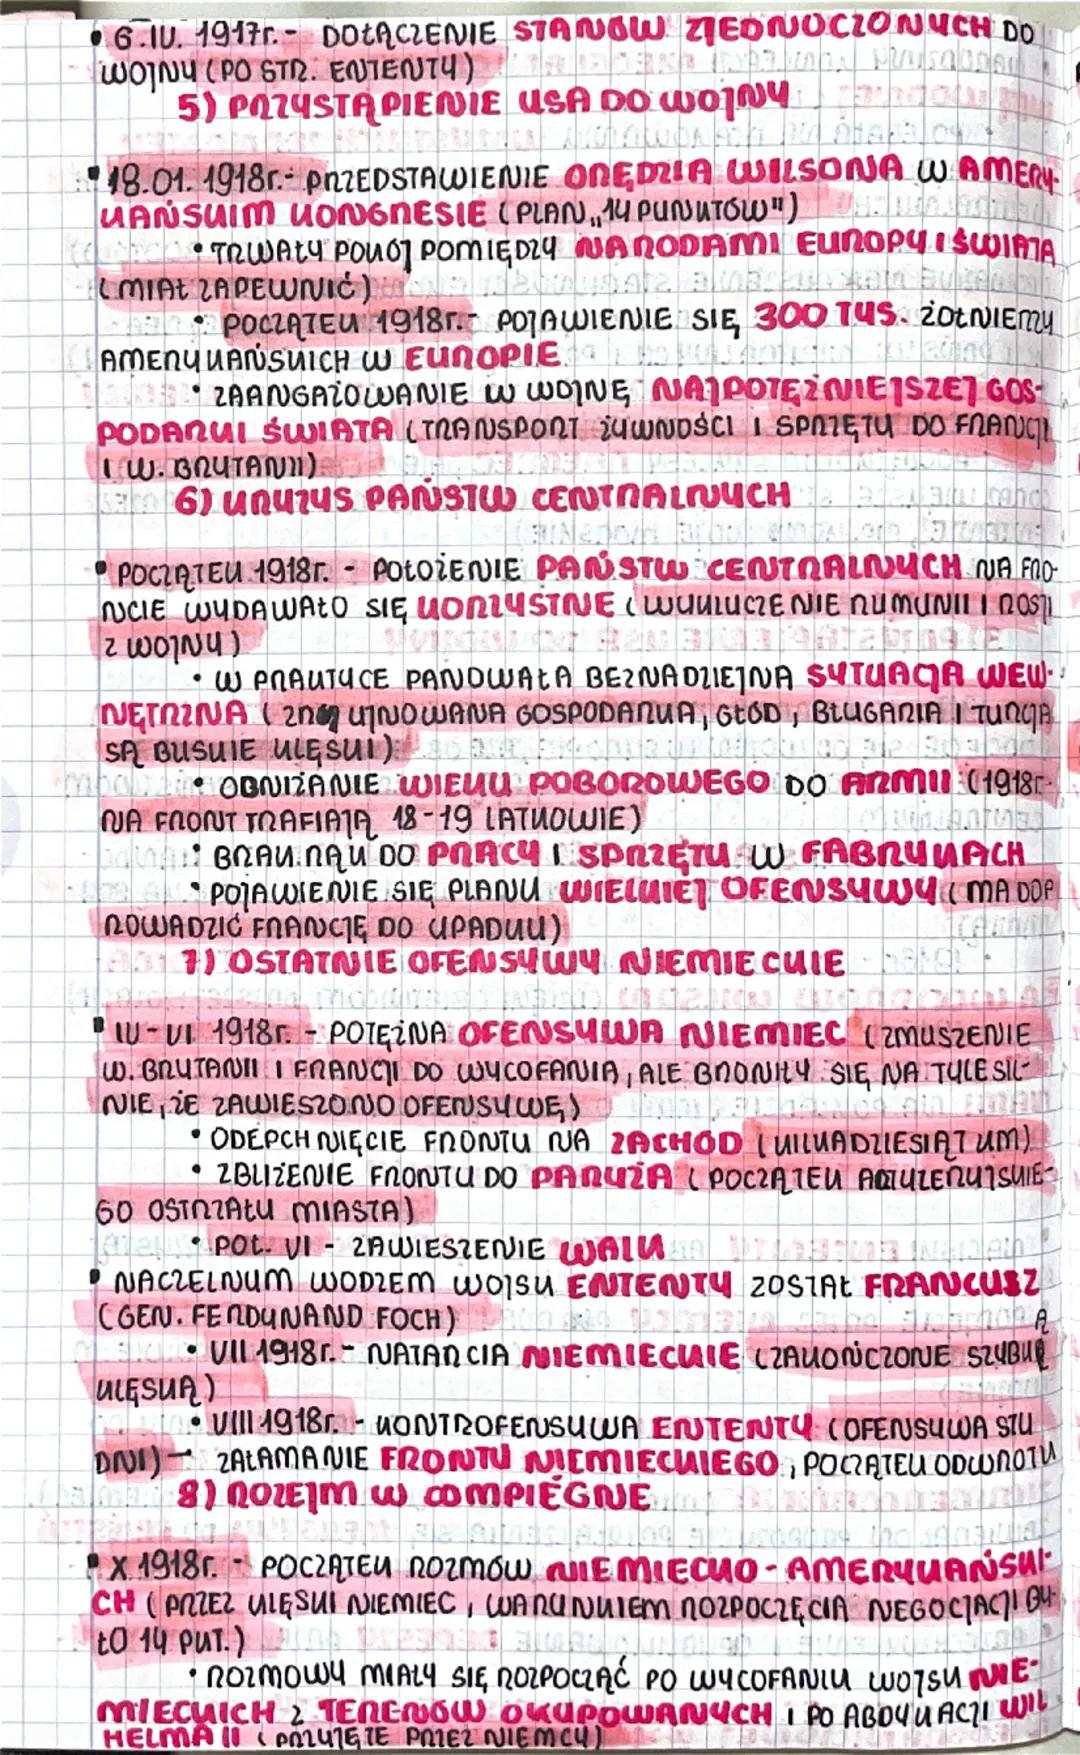 • 6.IV. 1917r. - DOŁĄCZENIE STANÓW ZJEDNOCZONYCH DO
WOJNY (PO STR. ENTENTY)
5) PRZYSTĄPIENIE USA DO WOJNY
• 18.01. 1918r. - PRZEDSTAWIENIE ORĘDZIA WILSONA W AMERY-
KAŃSKIM KONGRESIE (PLAN „14 PUNKTÓW")
• TRWAŁY POKÓJ POMIĘDZY NARODAMI EUROPY I ŚWIATA
(MIAŁ ZAPEWNIĆ)
• POCZĄTEK 1918r. - POJAWIENIE SIĘ 300 TYS. ŻOŁNIERZY
AMERYKAŃSKICH W EUROPIE
• ZAANGAŻOWANIE W WOJNĘ NAJPOTĘŻNIEJSZEJ GOS-
PODARKI ŚWIATA (TRANSPORT ŻYWNOŚCI I SPRZĘTU DO FRANCJI
I W. BRYTANII)
6) KRYZYS PAŃSTW CENTRALNYCH
• POCZĄTEK 1918r. - POŁOŻENIE PAŃSTW CENTRALNYCH NA FRO-
NCIE WYDAWAŁO SIĘ KORZYSTNE (WYKLUCZENIE RUMUNII I ROSJI
Z WOJNY)
• W PRAKTYCE PANOWAŁA BEZNADZIEJNA SYTUACJA WEW-
NĘTRZNA (ZRUJNOWANA GOSPODARKA, GŁÓD, BŁUGARIA I TURCJA
SĄ BLISKIE KLĘSKI)
• OBNIŻANIE WIEKU POBOROWEGO DO ARMII (1918r.-
NA FRONT TRAFIAJĄ 18-19 LATKOWIE)
• BRAK RĄK DO PRACY I SPRZĘTU W FABRYKACH
• POJAWIENIE SIĘ PLANU WIELKIEJ OFENSYWY (MA DOP
ROWADZIĆ FRANCJĘ DO UPADKU)
7) OSTATNIE OFENSYWY NIEMIECKIE
• IV-VI 1918r. - POTĘŻNA OFENSYWA NIEMIEC (ZMUSZENIE
W. BRYTANII I FRANCJI DO WYCOFANIA, ALE BRONIŁY SIĘ NA TYLE SIL-
NIE, ŻE ZAWIESZONO OFENSYWĘ)
• ODEPCHNIĘCIE FRONTU NA ZACHÓD (KILKADZIESIĄT KM)
• ZBLIŻENIE FRONTU DO PARYŻA (POCZĄTEK ARTYLERYJSKIE-
GO OSTRZAŁU MIASTA)
• POŁ. VI - ZAWIESZENIE WALK
• NACZELNYM WODZEM WOJSK ENTENTY ZOSTAŁ FRANCUSZ
(GEN. FERDYNAND FOCH)
• VII 1918r. - NATARCIA NIEMIECKIE (ZAKOŃCZONE SZYBKĄ
KLĘSKĄ)
• VIII 1918r. - KONTROFENSYWA ENTENTY (OFENSYWA STU
DNI) - ZAŁAMANIE FRONTU NIEMIECKIEGO, POCZĄTEK ODWROTU
8) ROZEJM W COMPIÈGNE
• X 1918r. - POCZĄTEK ROZMÓW NIEMIECKO-AMERYKAŃSKI-
CH (PRZEZ KLĘSKI NIEMIEC, WARUNKIEM ROZPOCZĘCIA NEGOCJACJI BY-
ŁO 14 PKT.)
• ROZMOWY MIAŁY SIĘ ROZPOCZĄĆ PO WYCOFANIU WOJSK NIE-
MIECKICH Z TERENÓW OKUPOWANYCH I PO ABDYKACJI WIL
HELMA II (PRZYJĘTE PRZEZ NIEMCY)